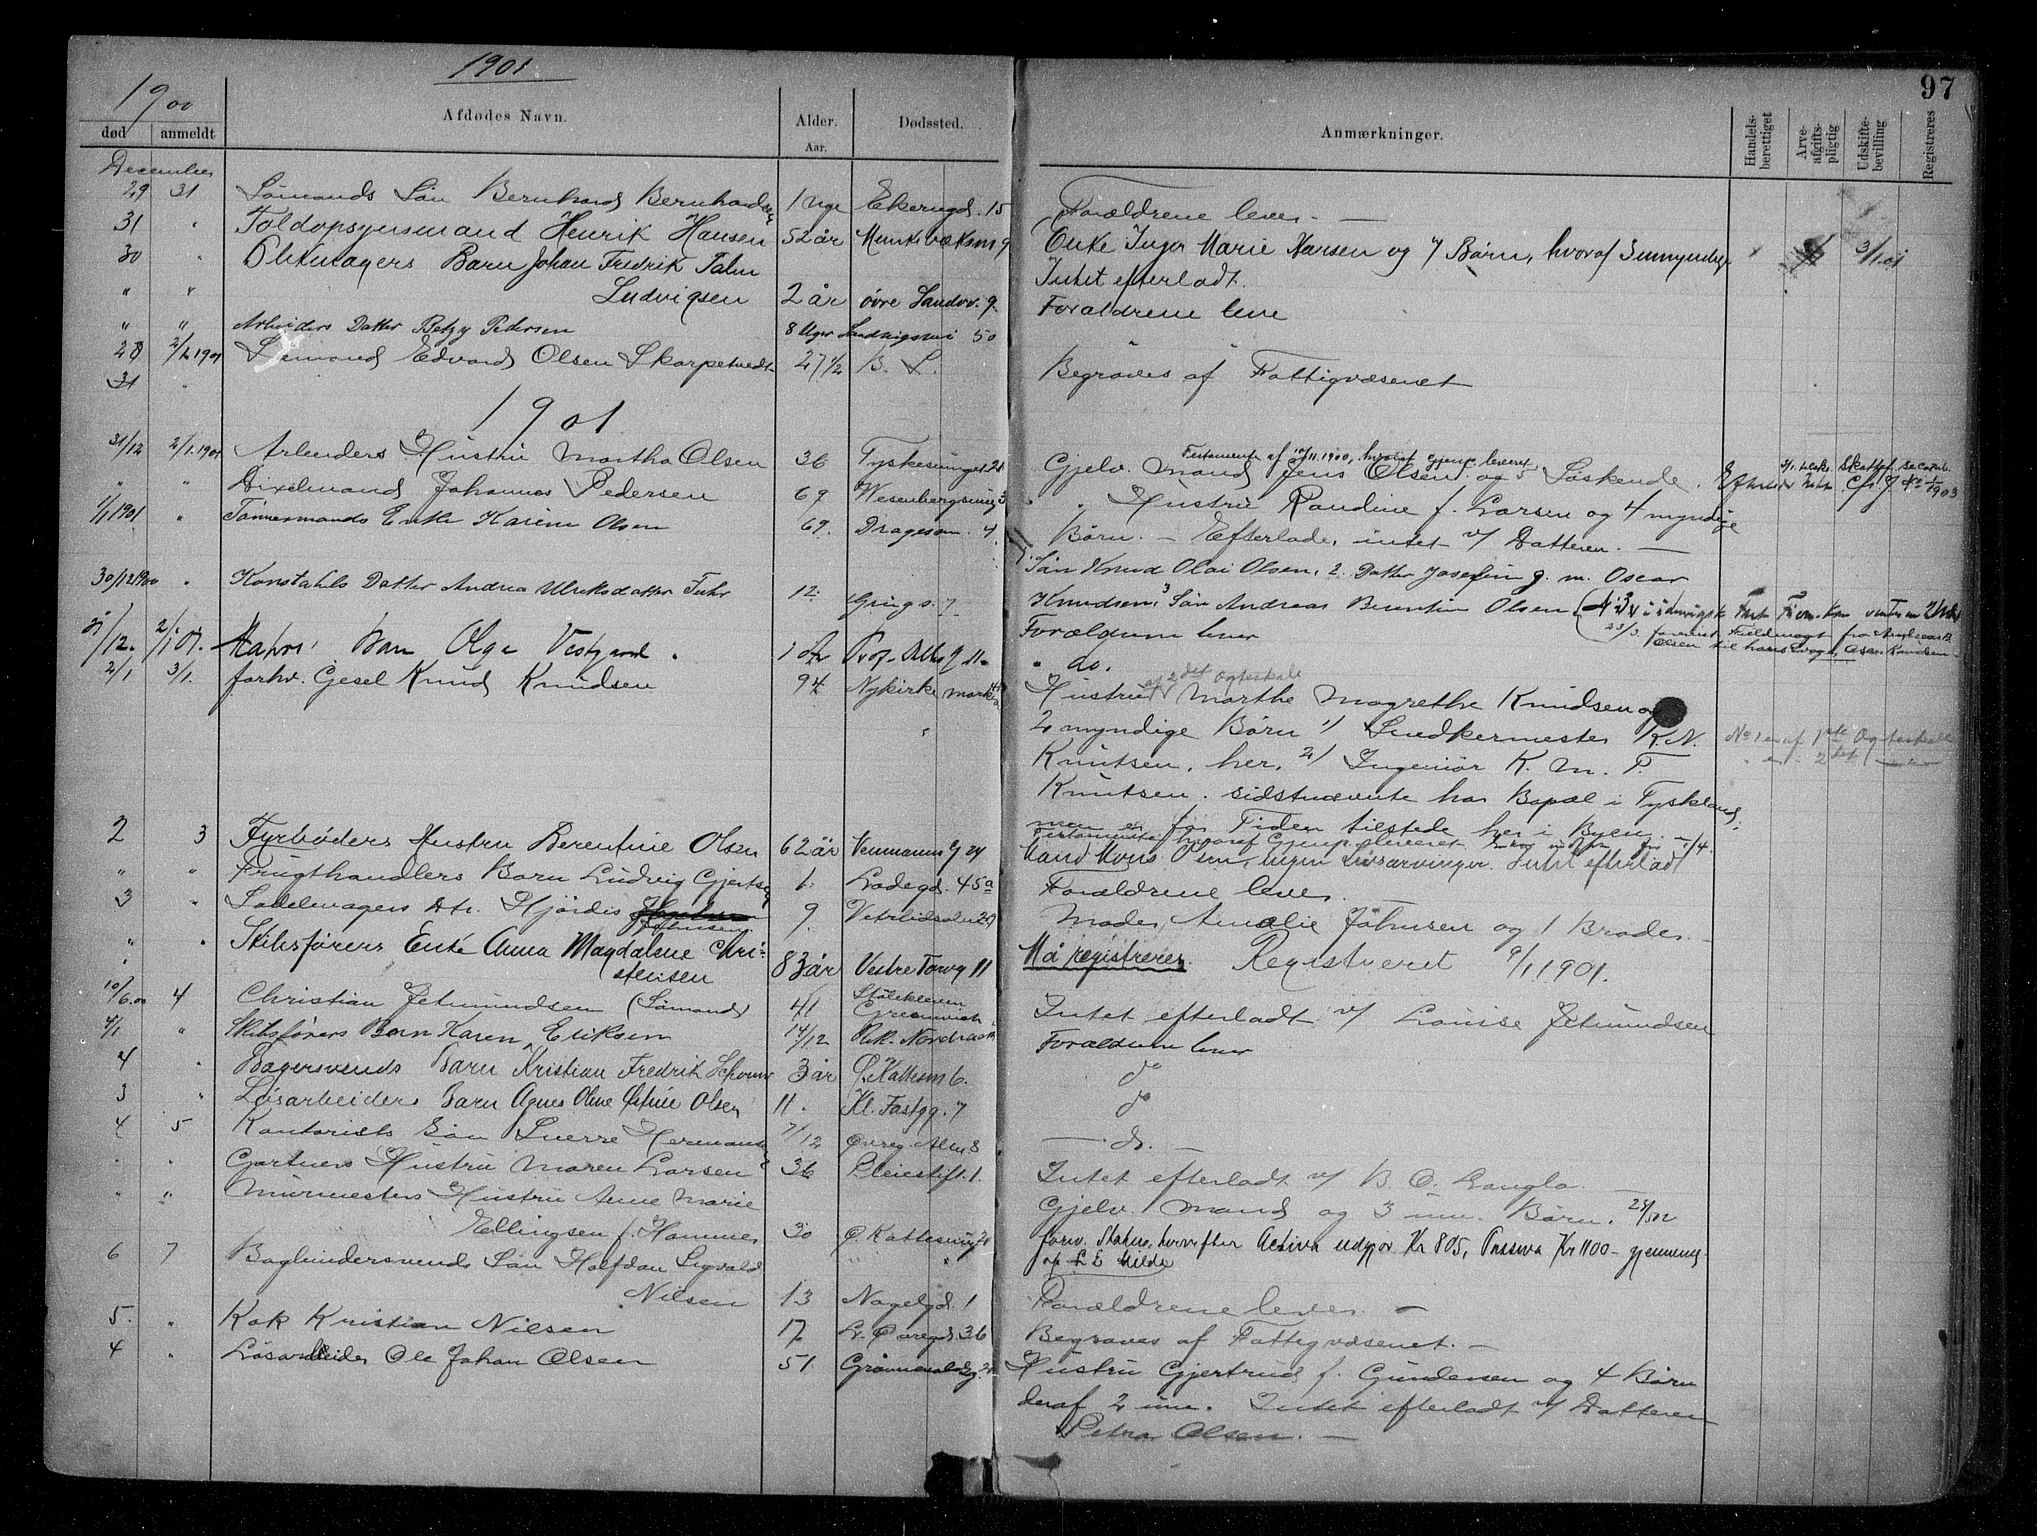 1901
97
1900
død
anmeldt
Afdødes Navn.
Alder.
Aar.
Dødssted.
Anmærkninger.
Handels-berettiget
Arve-afgifts-pligtig
Udskifte-bevilling
Registreres
December
29 31 Sømands Søn Bernhard Bernhardsen 1 Uge Ekerengd. 15 Forældrene lever. —
31 " Toldopsynsmand Henrik Hansen 52 år Munkebæksm 9 Enke Inger Marie Hansen og 7 Børn, hvoraf 3 umyndige 3/1.01
30 " Blikmagers Barn Johan Fredrik Intet efterladt.
Ludvigsen 2 år øvre Sandv. 9. Forældrene leve
" " Arbeiders Datter Betzy Pedersen 8 Uger Sandvigsvei 50 "
28 2/1.1901 Sømand Edvard Olsen Skarpetvedt 27 1/2 B. S. Begraves af Fattigvæsenet
31 "
1901.
31/12 2/1.1901 Arbeiders Hustru Martha Olsen 36 Tyskesmuget 21
Testamente af 10/11.1900, hvoraf Gjenp. leveret
Gjelv. Mand Jens Olsen og 5 Søskende.
" " Dixelmand Johannes Pedersen 69 Wesenbergsmug 3 " Hustru Randine f. Larsen og 4 myndige
1/1 1901 " Tømmermands Enke Karine Olsen 69. Dragesm. 4. Børn. — Efterlader intet v/ Datteren. —
Søn Knud Olai Olsen, 2. Datter Josefine g. m. Oscar
30/12 1900 " Konstabls Datter Andrea Ulriksdatter Fuhr 12 Grings. 7 Knudsen, 3 Søn Andreas Berntin Olsen
31/12. 2/1 01. Barn Olga Vestgaard. Forældrene lever
2/1 3/1. forhv. Gesel Knud Knudsen 94 Nykirke " do.
af 2det Ogteskab
Hustru Marthe Magrethe Knudsen og
2 myndige Børn 1/ Snedkermester K. N.
No 1 er af 1ste Ogteskab
Knutsen, her, 2/ Ingeniør K. M. P.
" " 2det "
Knutsen. sidstnævnte har Bopæl i Tyskland,
men er for Tiden tilstede her i Byen.
2 3 Fyrbøders Hustru Berentine Olsen 62 år Venmanns g 24 Mand Mons Olsen, ingen Livsarvinger. Intet efterladt
" " Frugthandlers Barn Ludvig Gjertsen 1. Ladegd. 45a Forældrene lever
3 " Sadelmagers Dtr. Hjørdis Johnsen 9 Vetrlidsalm. Moder Amalie Johnsen og 1 Broder —
" " Skibsførers Enke Anna Magdalene Chri-
stensen 83 år Vestre Torvg 11 Må registreres. Registreret 9/1 1901.
10/6.00 4 Christian Jetmundsen (Sømand) 41 Greenwich Intet efterladt v/ Louise Jetmundsen
4/1 " Skibsførers Barn Karen Eriksen 14/12 Forældrene lever
4 " Bagersvends Barn Kristian Fredrik 3 år Ø. Kattesm 6. do
3 " Løsarbeiders Barn Agnes Oline Olsen 11 . Kl. Fastgg. 7 do
4 5 Kontorists Søn Sverre Hermansen 7/12 Øvreg. Alm 8 — do. —
" " Gartners Hustru Maren Larsen 36 Pleiestift. 1. Intet efterladt v/ B. O. Langlo.
" " Murmesters Hustru Anne Marie Gjelv. Mand og 3 um. Børn.
Ellingsen f. Hammer 30 Ø. Kattesmug forv. Status, hvorefter Activa udgjør Kr 805, Passiva Kr 1100 — gjennemg.
6 7 Bogbindersvends Søn Halfdan Sigvald af L E Milde
Nilsen 13 Nagelgd. 1 Forældrene lever. —
5. " Kok Kristian Nilsen 17 L. Øvregd. 36 Begraves af Fattigvæsenet. —
4 " Løsarbeider Ole Johan Olsen 51. Hustru Gjertrud f. Gundersen og 4 Børn
deraf 2 um. Intet efterladt v/ Datteren
Petra Olsen. —